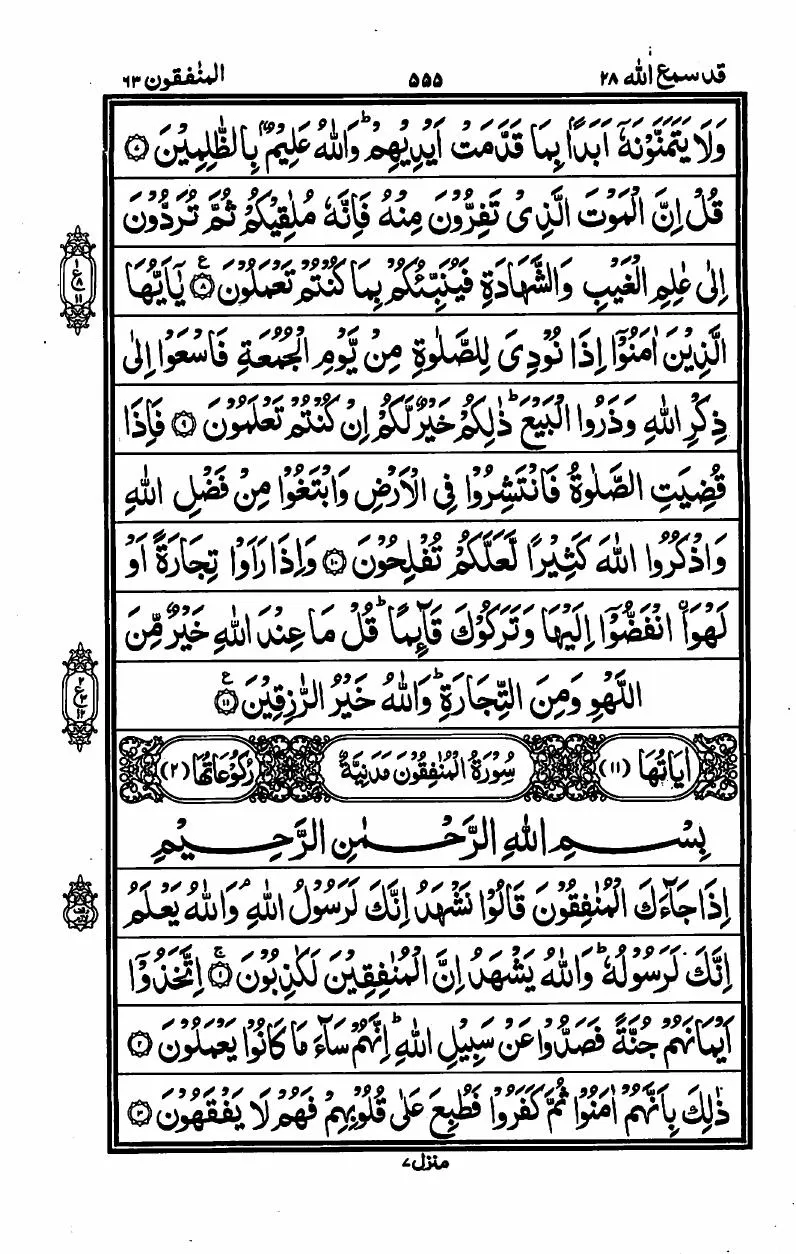 قد سمع الله ٢٨
٥٥٥
المنٰفقون ٦٣
وَلَا يَتَمَنَّوْنَهٗۤ اَبَدًۢا بِمَا قَدَّمَتْ اَيْدِيْهِمْ ؕ وَاللّٰهُ عَلِيْمٌۢ بِالظّٰلِمِيْنَ ۝٧
قُلْ اِنَّ الْمَوْتَ الَّذِىْ تَفِرُّوْنَ مِنْهُ فَاِنَّهٗ مُلٰقِيْكُمْ ثُمَّ تُرَدُّوْنَ
اِلٰى عٰلِمِ الْغَيْبِ وَالشَّهَادَةِ فَيُنَبِّئُكُمْ بِمَا كُنْتُمْ تَعْمَلُوْنَ ۝٨ ع يٰۤاَيُّهَا
١ ع ٨ ١١
الَّذِيْنَ اٰمَنُوْۤا اِذَا نُوْدِىَ لِلصَّلٰوةِ مِنْ يَّوْمِ الْجُمُعَةِ فَاسْعَوْا اِلٰى
ذِكْرِ اللّٰهِ وَذَرُوا الْبَيْعَ ؕ ذٰلِكُمْ خَيْرٌ لَّكُمْ اِنْ كُنْتُمْ تَعْلَمُوْنَ ۝٩ فَاِذَا
قُضِيَتِ الصَّلٰوةُ فَانْتَشِرُوْا فِى الْاَرْضِ وَابْتَغُوْا مِنْ فَضْلِ اللّٰهِ
وَاذْكُرُوا اللّٰهَ كَثِيْرًا لَّعَلَّكُمْ تُفْلِحُوْنَ ۝١٠ وَاِذَا رَاَوْا تِجَارَةً اَوْ
لَهْوَا۟ انْفَضُّوْۤا اِلَيْهَا وَتَرَكُوْكَ قَآئِمًا ؕ قُلْ مَا عِنْدَ اللّٰهِ خَيْرٌ مِّنَ
اللَّهْوِ وَمِنَ التِّجَارَةِ ؕ وَاللّٰهُ خَيْرُ الرّٰزِقِيْنَ ۝١١ ع
٢ ع ٣ ١٢
اٰيَاتُهَا (١١)
سُوْرَةُ الْمُنٰفِقُوْنَ مَدَنِيَّةٌ
رُكُوْعَاتُهَا (٢)
بِسْمِ اللّٰهِ الرَّحْمٰنِ الرَّحِيْمِ
اِذَا جَآءَكَ الْمُنٰفِقُوْنَ قَالُوْا نَشْهَدُ اِنَّكَ لَرَسُوْلُ اللّٰهِ ۘ وَاللّٰهُ يَعْلَمُ
اِنَّكَ لَرَسُوْلُهٗ ؕ وَاللّٰهُ يَشْهَدُ اِنَّ الْمُنٰفِقِيْنَ لَكٰذِبُوْنَ ۝١ ۚ اِتَّخَذُوْۤا
اَيْمَانَهُمْ جُنَّةً فَصَدُّوْا عَنْ سَبِيْلِ اللّٰهِ ؕ اِنَّهُمْ سَآءَ مَا كَانُوْا يَعْمَلُوْنَ ۝٢
ذٰلِكَ بِاَنَّهُمْ اٰمَنُوْا ثُمَّ كَفَرُوْا فَطُبِعَ عَلٰى قُلُوْبِهِمْ فَهُمْ لَا يَفْقَهُوْنَ ۝٣
منزل ٧